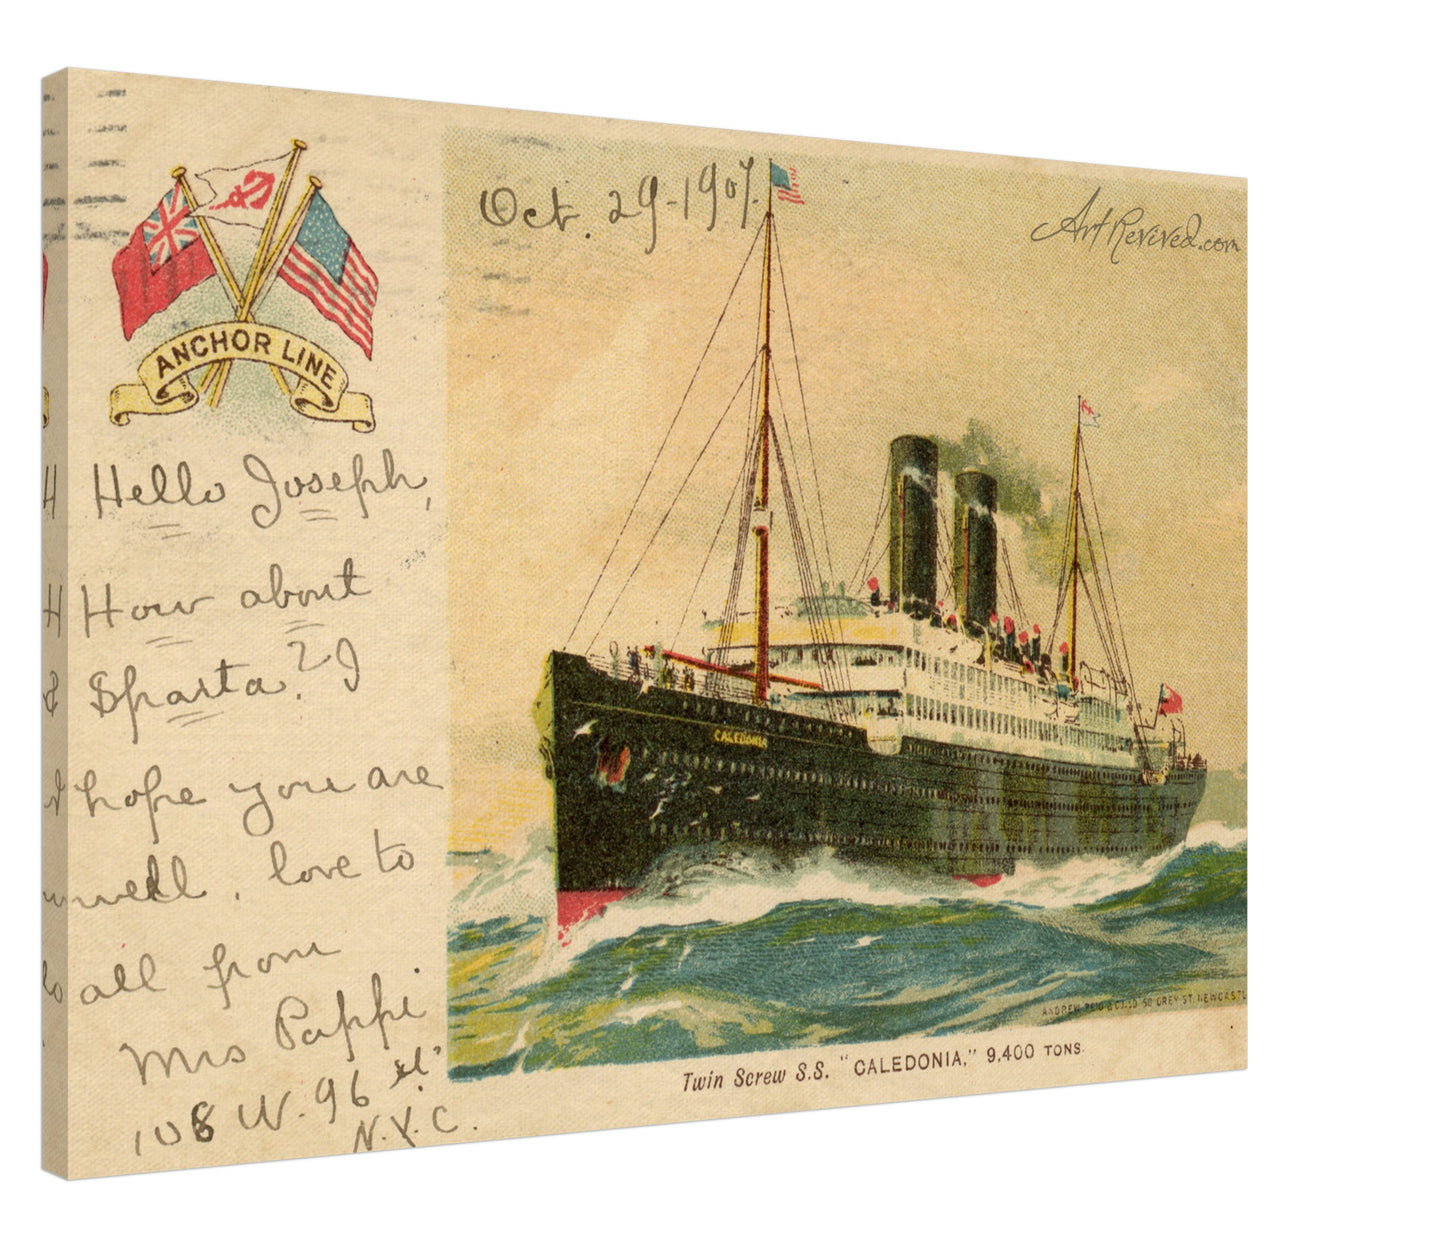 Oct. 29-1907.
ArtRevived.com
ANCHOR LINE
Hello Joseph,
How about
Sparta? I
hope you are
well. love to
all from
Mrs Pappi
108 W. 96 St.
N.Y.C.
CALEDONIA
ANDREW REID & CO. LD 50 GREY ST. NEWCASTL
Twin Screw S.S. "CALEDONIA," 9,400 TONS.